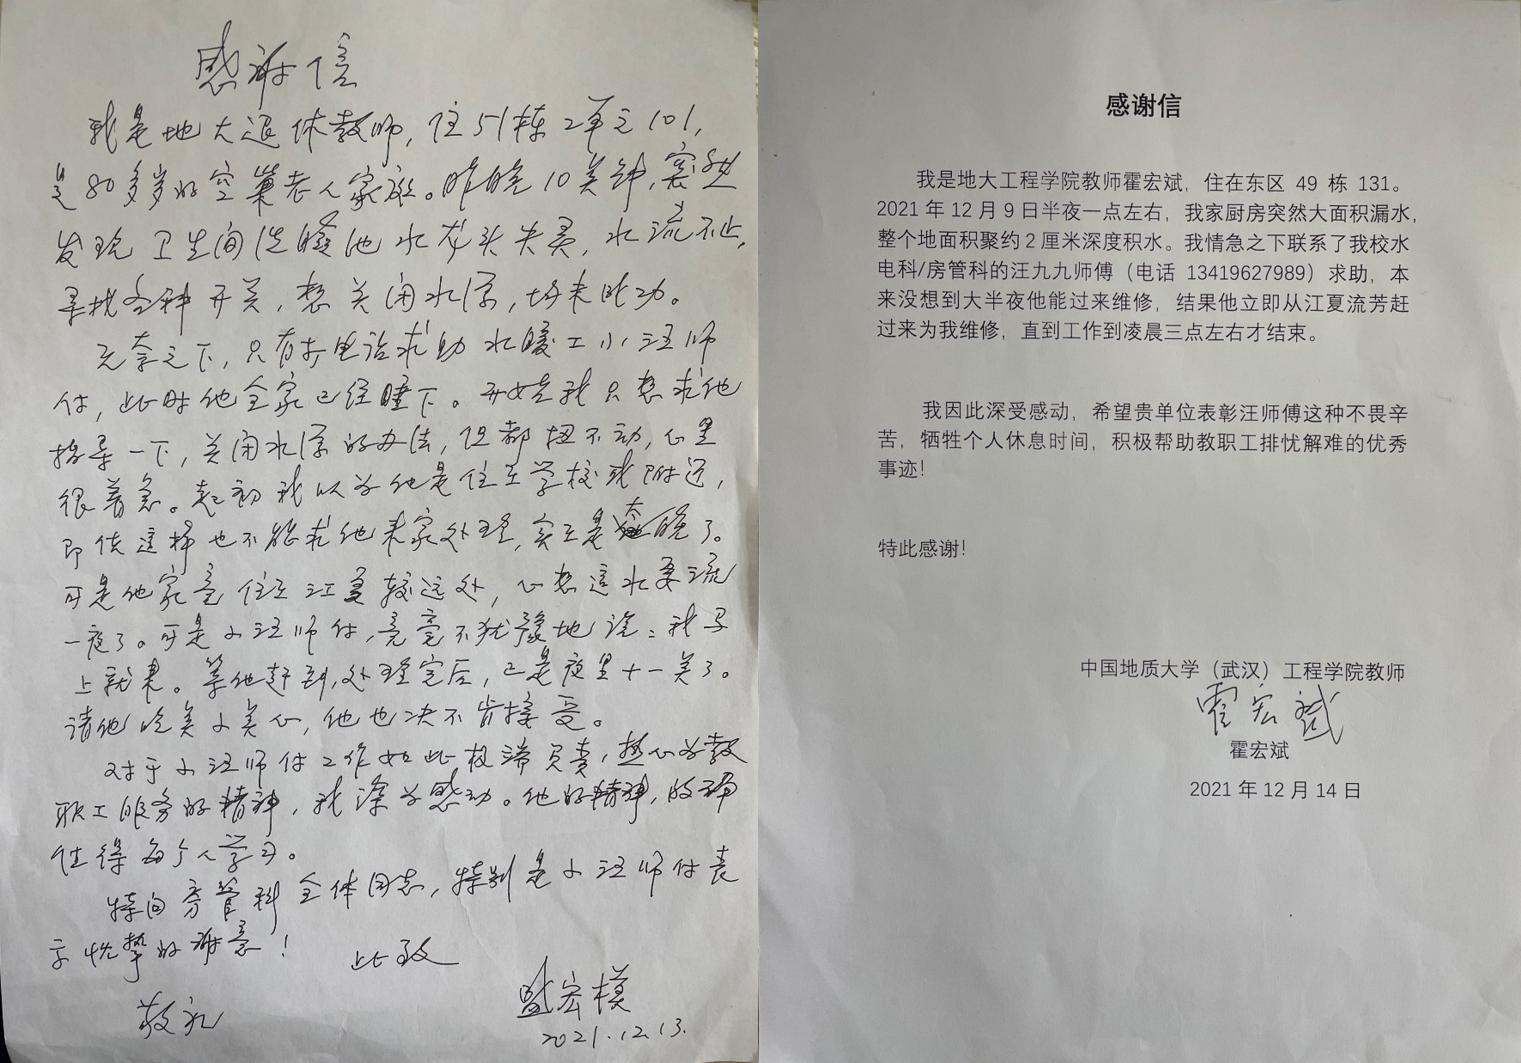 感谢信
我是地大退休教师，住51栋2单元101，
是80多岁的空巢老人家庭。昨晚10点钟，突然
发现卫生间洗 池水龙头失灵，水流不止，
寻找各种开关，想关闭水源，均未成功。
无奈之下，只有打电话求助水暖工小汪师
付，此时他全家已经睡下。开始我只想求他
指导一下，关闭水源的办法，但都扭不动，心里
很着急。起初我以为他是住在学校或附近，
即使这样也不能求他来家处理，实在是太晚了。
可是他家竟住在江夏较远处，心想这水要流
一夜了。可是小汪师付，竟毫不犹豫地说：我马
上就来。等他赶到，处理完后，已是夜里十一点了。
请他吃点小点心，他也决不肯接受。
对于小汪师付工作如此极端负责，热心为教
职工服务的精神，我深为感动。他的精神，
值得每个人学习。
特向房管科全体同志，特别是小汪师付表
示忱挚的谢意！
此致
敬礼
宏模
2021.12.13.
感谢信
我是地大工程学院教师霍宏斌，住在东区 49 栋 131。
2021 年 12 月 9 日半夜一点左右，我家厨房突然大面积漏水，
整个地面积聚约 2 厘米深度积水。我情急之下联系了我校水
电科/房管科的汪九九师傅（电话 13419627989）求助，本
来没想到大半夜他能过来维修，结果他立即从江夏流芳赶
过来为我维修，直到工作到凌晨三点左右才结束。
我因此深受感动，希望贵单位表彰汪师傅这种不畏辛
苦，牺牲个人休息时间，积极帮助教职工排忧解难的优秀
事迹！
特此感谢！
中国地质大学（武汉）工程学院教师
霍宏斌
霍宏斌
2021 年 12 月 14 日